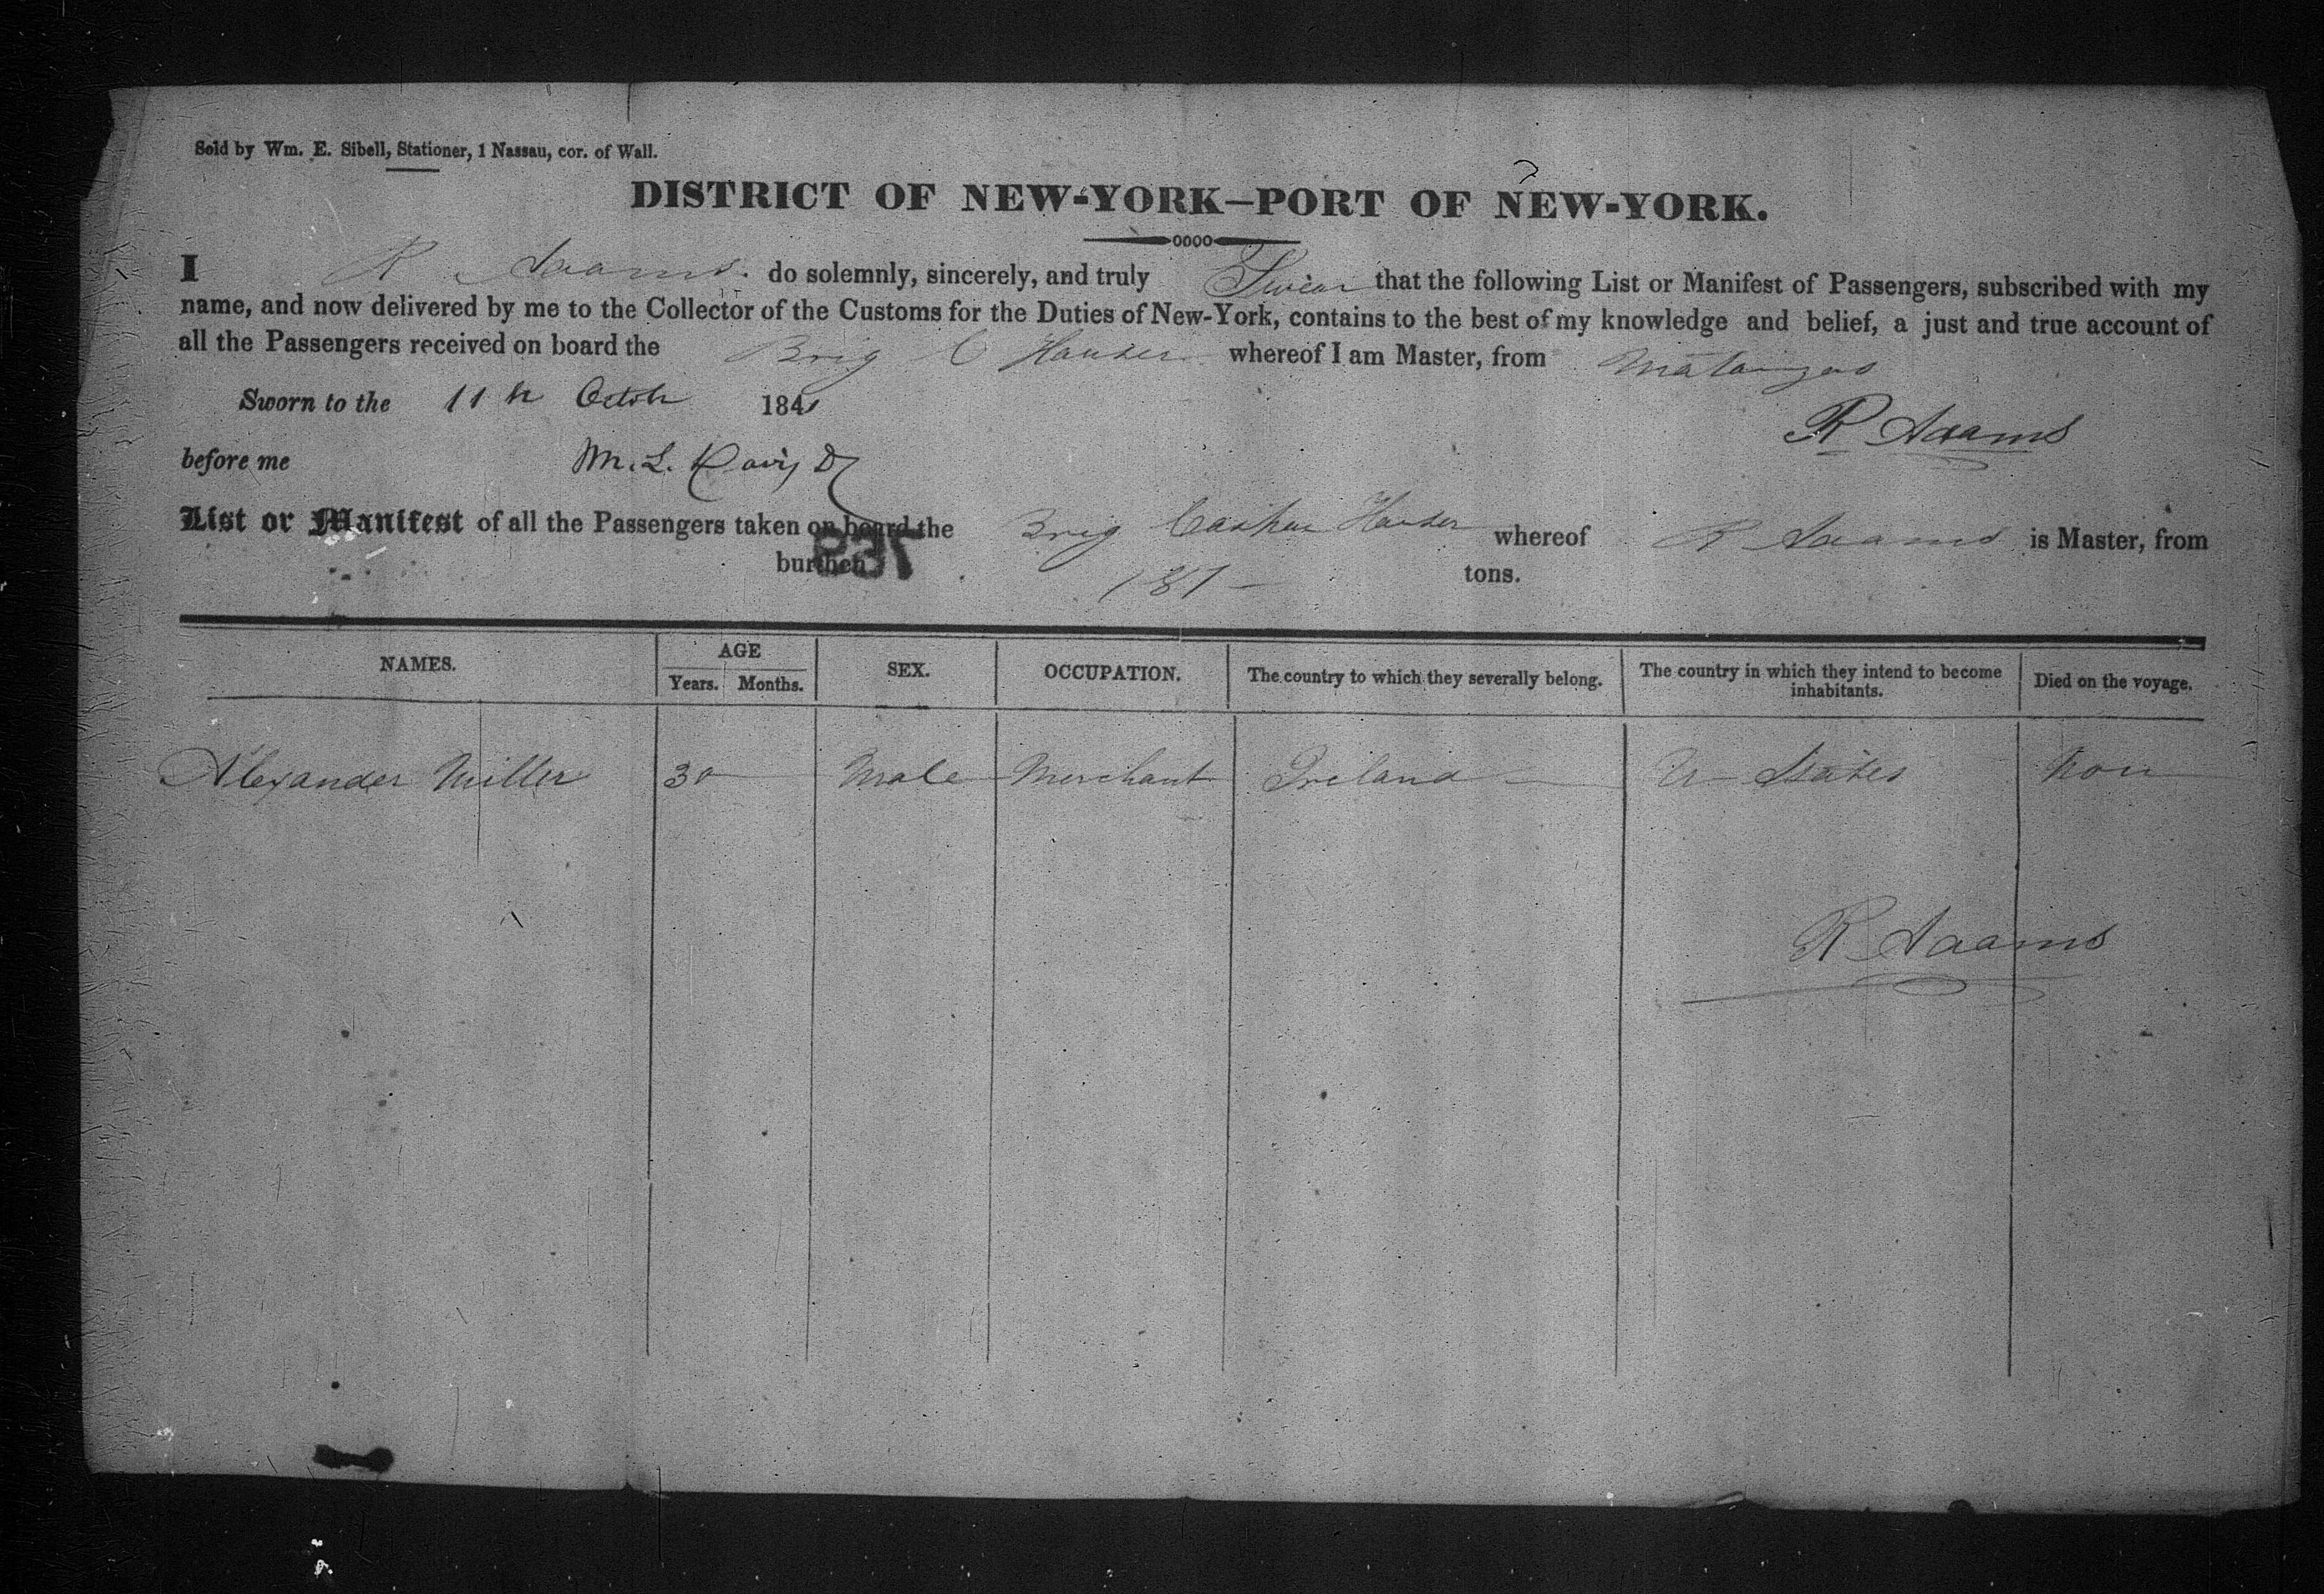 Sold by Wm. E. Sibell, Stationer, 1 Nassau, cor. of Wall.
DISTRICT OF NEW-YORK—PORT OF NEW-YORK.
I R Adams. do solemnly, sincerely, and truly Swear that the following List or Manifest of Passengers, subscribed with my
name, and now delivered by me to the Collector of the Customs for the Duties of New-York, contains to the best of my knowledge and belief, a just and true account of
all the Passengers received on board the Brig C Hauser whereof I am Master, from Matanzas
Sworn to the 11th 184
R Adams
before me M. L. Davis
List or Manifest of all the Passengers taken on board the Brig Hauser whereof R Adams is Master, from
burthen 187 tons.
NAMES. AGE Years. Months. SEX. OCCUPATION. The country to which they severally belong. The country in which they intend to become inhabitants. Died on the voyage.
Alexander Miller 30 Male Merchant Ireland U States Non
R Adams